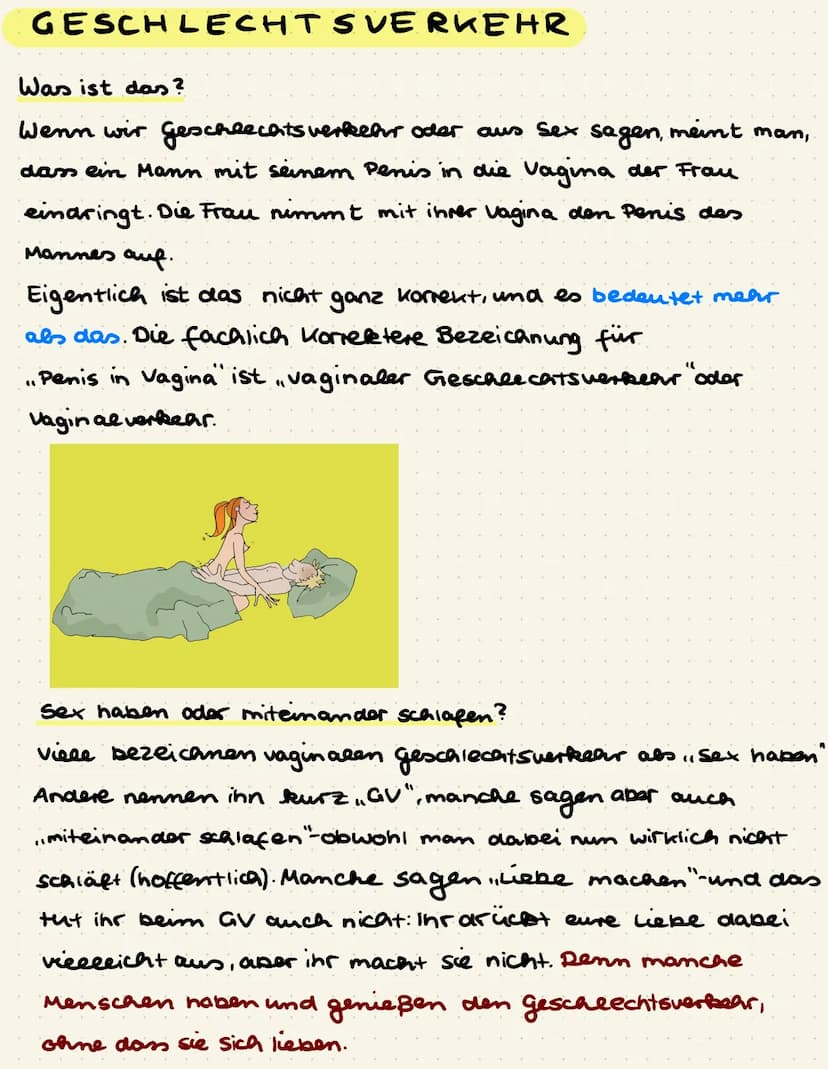 GESCHLECHTSVERKEHR
Was ist das?
Wenn wir Geschlechtsverkehr oder aus Sex sagen, meint man,
dass ein Mann mit seinem Penis in die Vagina der Frau
eindringt. Die Frau nimmt mit ihrer Vagina den Penis des
Mannes auf.
Eigentlich ist das nicht ganz korrekt, und es bedeutet mehr
als das. Die fachlich korrektere Bezeichnung für
„Penis in Vagina" ist „vaginaler Geschlechtsverkehr" oder
Vaginalverkehr.
Sex haben oder miteinander schlafen?
Viele bezeichnen vaginalen Geschlechtsverkehr als „Sex haben"
Andere nennen ihn kurz „GV", manche sagen aber auch
„miteinander schlafen"-obwohl man dabei nun wirklich nicht
schläft (hoffentlich). Manche sagen „Liebe machen"-und das
tut ihr beim GV auch nicht: Ihr drückt eure Liebe dabei
vielleicht aus, aber ihr macht sie nicht. Denn manche
Menschen haben und genießen den Geschlechtsverkehr,
ohne dass sie sich lieben.